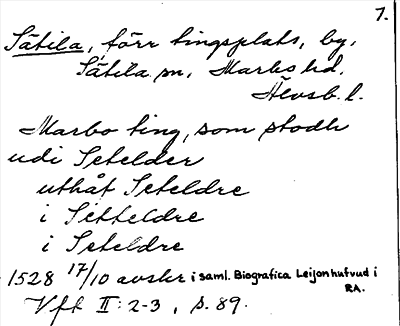 7.
Sätila, förr tingsplats, by,
Sätila sn, Marks hd,
Älvsb. l.
Marbo ting, som stodh
udi Setelder
uthåt Seteldre
i Setteldre
i Seteldre
1528 17/10 avskr i saml. Biografica Leijonhufvud i
RA.
Vft II: 2-3, s. 89.